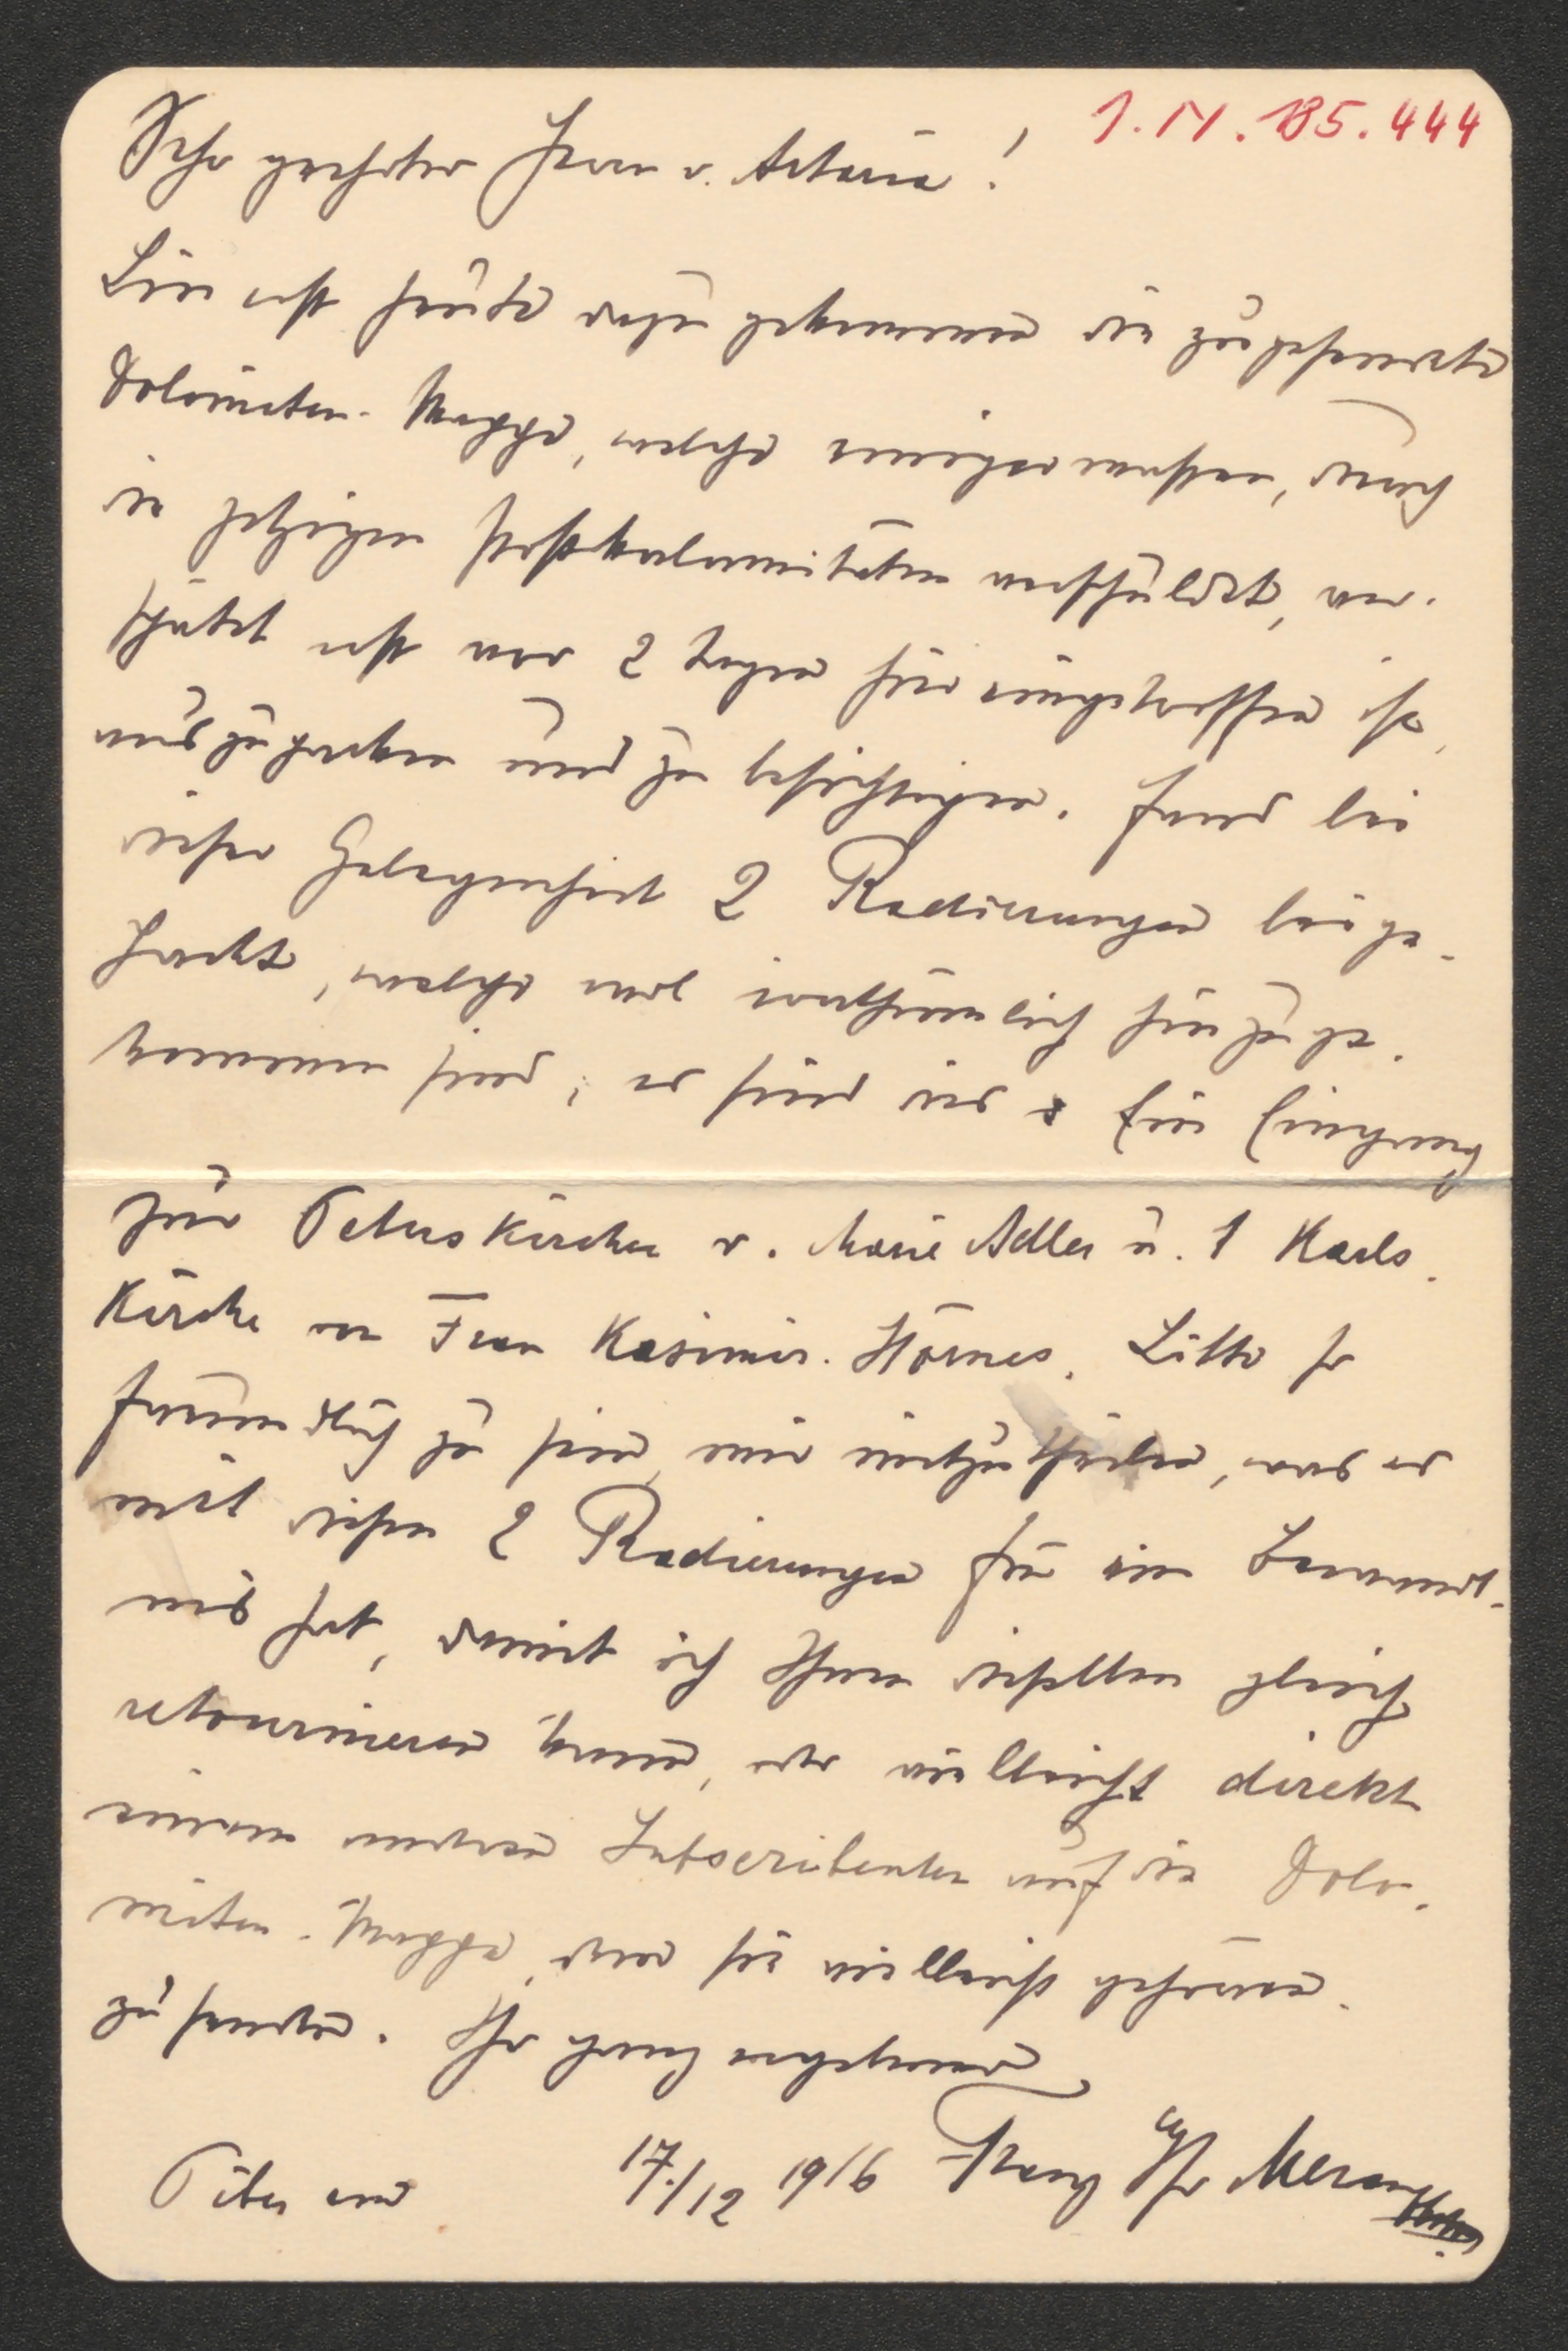 Sehr geehrter Herr v. Artaria! I.N. 185.444
Bin erst heute dazu gekommen die zugesandte
Dolomiten-Mappe, welche einigermassen, durch
die jetzigen Postkalamitäten verschuldet, ver-
spätet erst vor 2 Tagen hier eingetroffen ist,
auszupacken und zu besichtigen. Fand bei
dieser Gelegenheit 2 Radierungen beige-
packt, welche wol irrthümlich hinzuge-
kommen sind; es sind dies ein Eingang
zur Peterskirche v. Marie Adler u. 1 Karls-
Kirche von Frau Kasimir-Hörnes. Bitte so
freundlich zu sein, mir mitzutheilen, was es
mit diesen 2 Radierungen für ein Bewandt-
nis hat, damit ich Ihnen dieselben gleich
retournieren kann, oder vielleicht direkt
einem anderen Subscribenten auf die Dolo-
miten-Mappe, dem sie vielleicht gehören.
zu senden. Ihr ganz ergebener
17./12 1916 Franz Meran